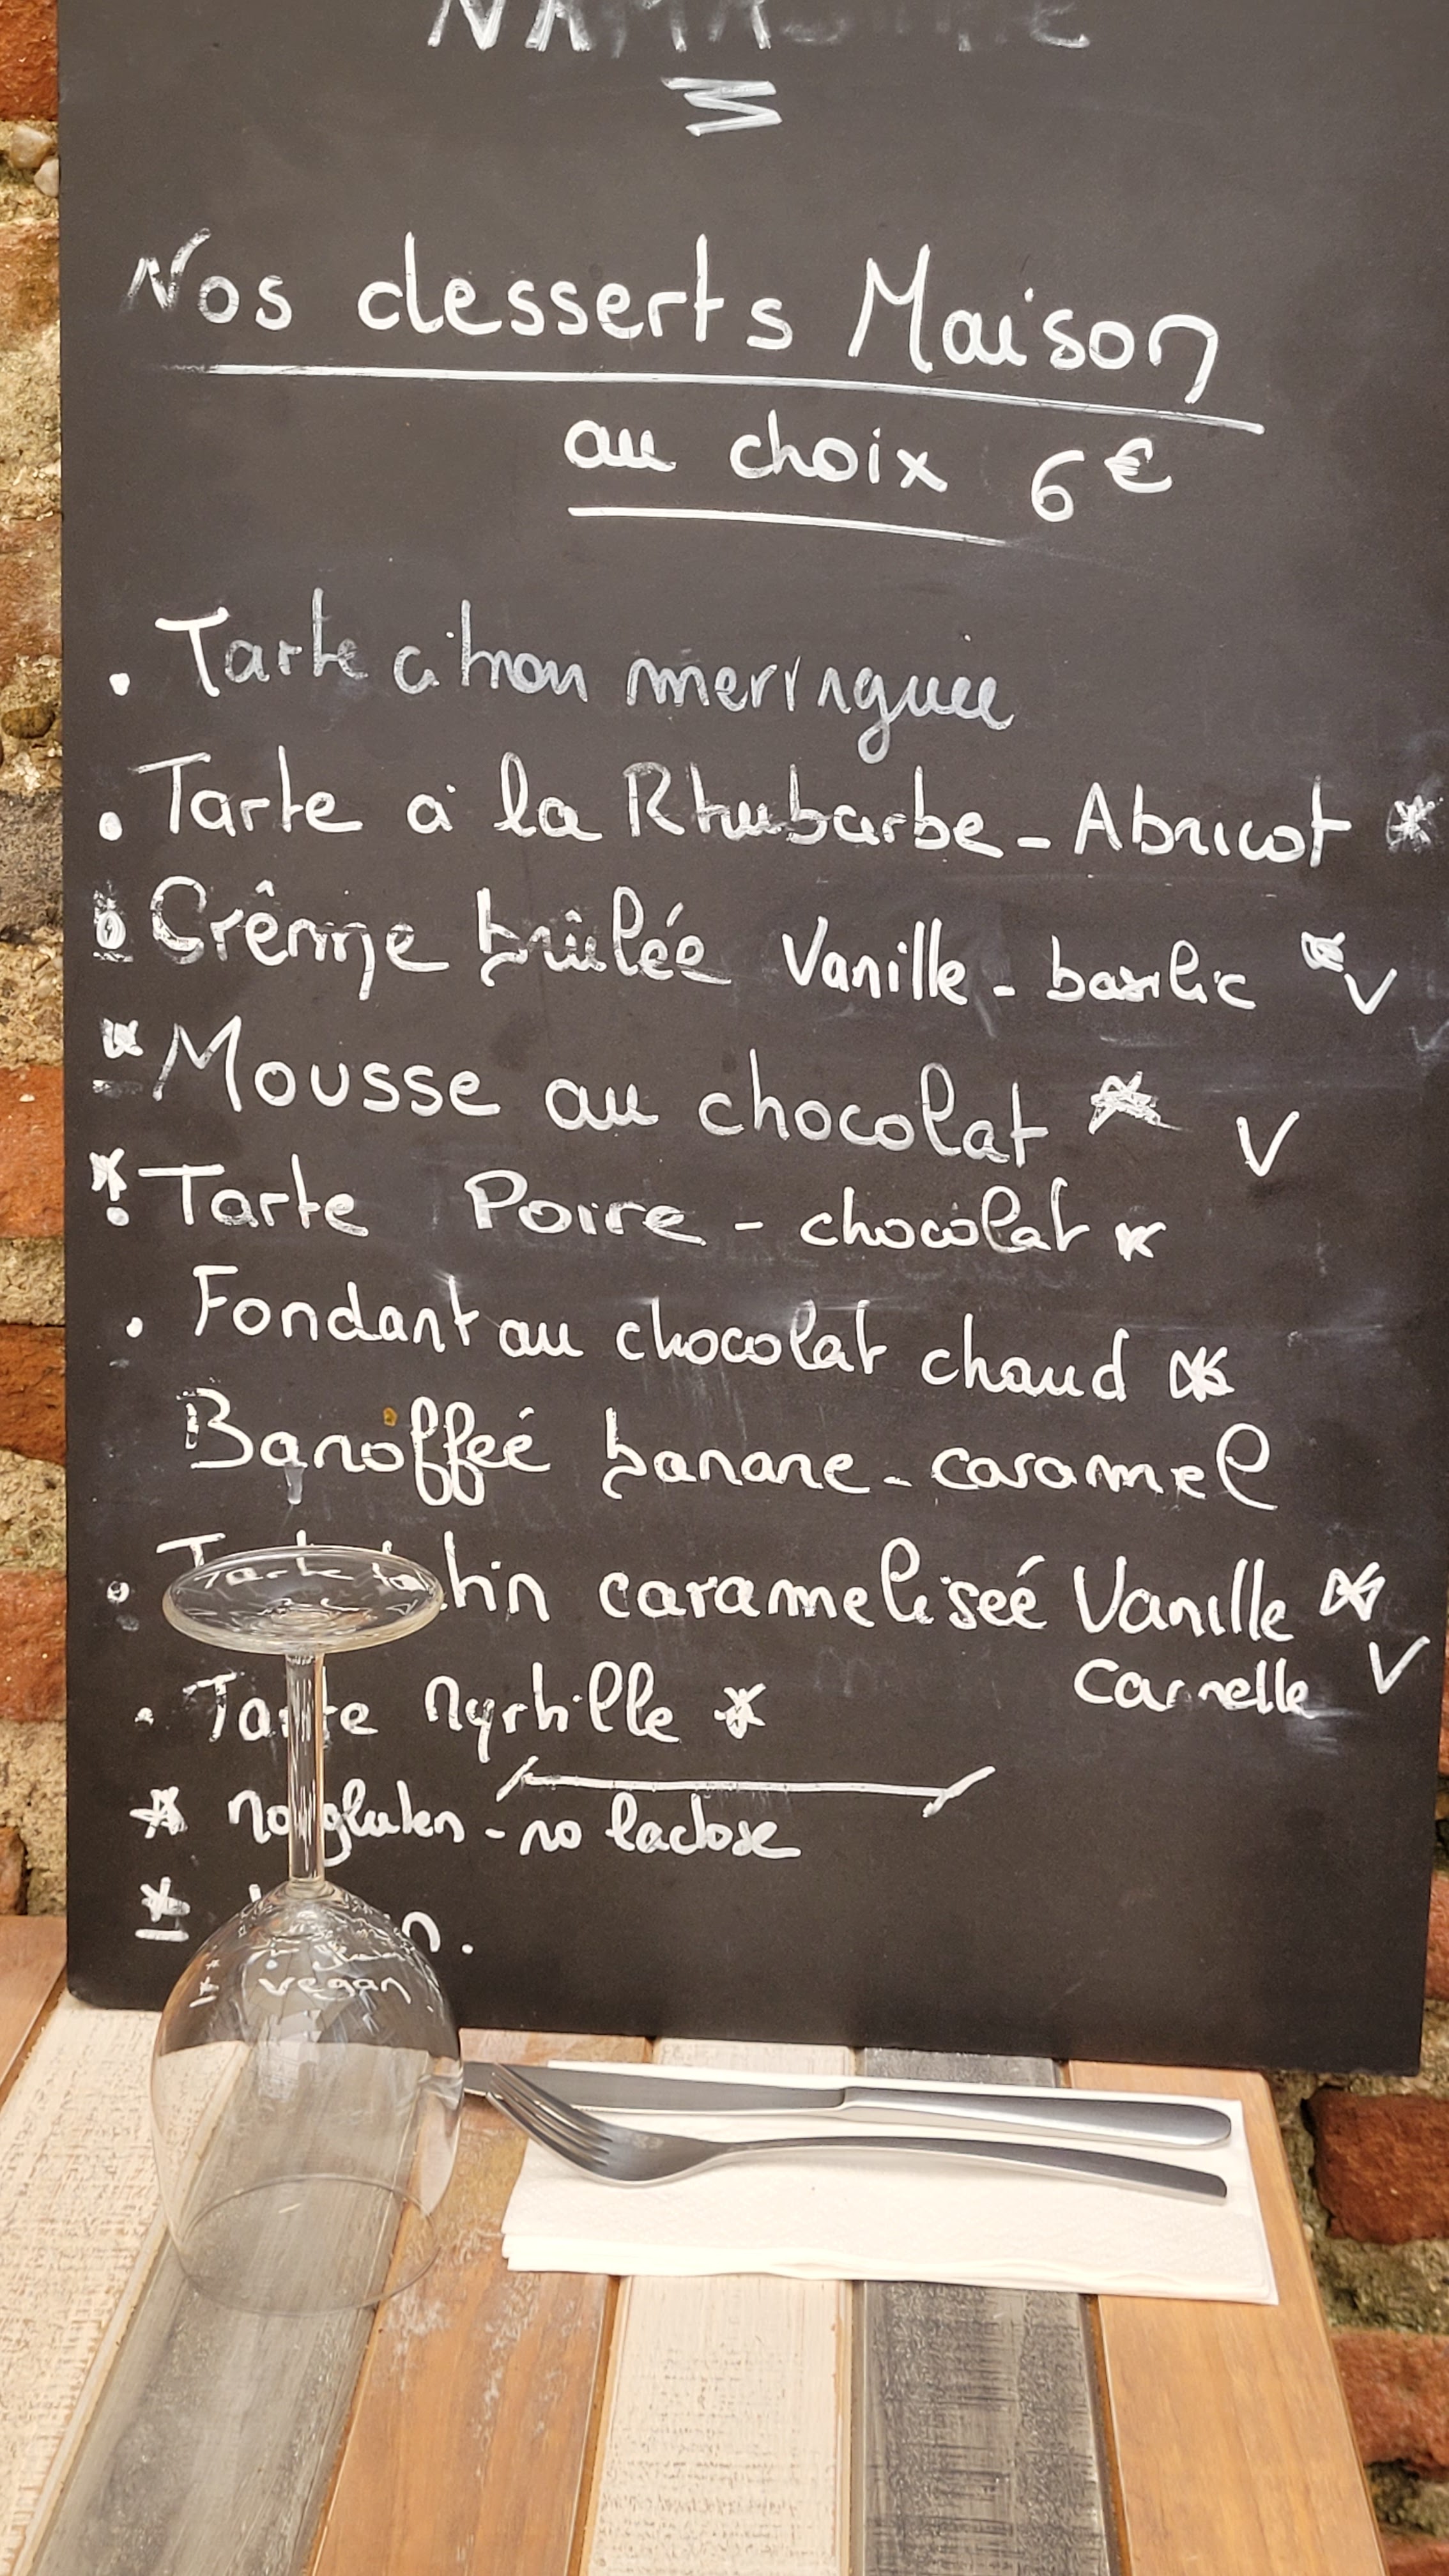 Nos desserts Maison
au choix 6€
. Tarte citron meringuée
. Tarte à la Rhubarbe - Abricot *
Crême brûlée Vanille - basilic * V
* Mousse au chocolat * V
* Tarte Poire - chocolat *
. Fondant au chocolat chaud *
Banoffeé banane - caramel
. Tarte tatin carameliseé Vanille *
Cannelle V
. Tarte Myrtille *
* no gluten - no lactose
* vegan.